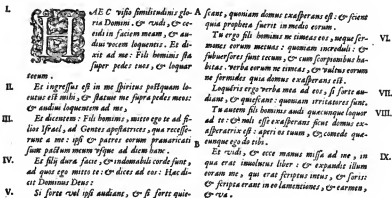 I.
HAEC visio similitudinis glo-
ria Domini. & vidi, & ce-
cidi in faciem meam, & au-
divi vocem loquentis. Et di-
xit ad me: Fili hominis sta
super pedes tuos, & loquar
tecum.
II. Et ingressus est in me spiritus postquam lo-
cutus est mihi, & statuit me supra pedes meos:
& audivi loquentem ad me,
III. Et dicentem: Fili hominis, mitto ego te ad fi-
lios Israel, ad Gentes apostatrices, quæ recesse-
runt a me: ipsi & patres eorum prævaricati
sunt pactum meum usque ad diem hanc.
IV. Et filij dura facie, & indomabili corde sunt,
ad quos ego mitto te: & dices ad eos: Hæc di-
cit Dominus Deus:
V. Si forte vel ipsi audiant, & si forte quie-
A scant, quoniam domus exasperans est: & scient
quia propheta fuerit in medio eorum.
VI. Tu ergo fili hominis ne timeas eos, neque ser-
mones eorum metuas: quoniam increduli: &
subversores sunt tecum, & cum scorpionibus ha-
bitas. verba eorum ne timeas, & vultus eorum
ne formides quia domus exasperans est.
VII. Loquêris ergo verba mea ad eos, si forte au-
diant, & quiescant: quoniam irritatores sunt.
VIII. Tu autem fili hominis audi quæcunque loquor
ad te: & noli esse exasperans sicut domus ex-
asperatrix est: aperi os tuum, & comede quæ-
B cunque ego do tibi.
IX. Et vidi, & ecce manus missa ad me, in
qua erat involutus liber: & expandit illum
coram me, qui erat scriptus intus, & foris:
& scripta erant in eo lamentationes, & carmen,
& væ.